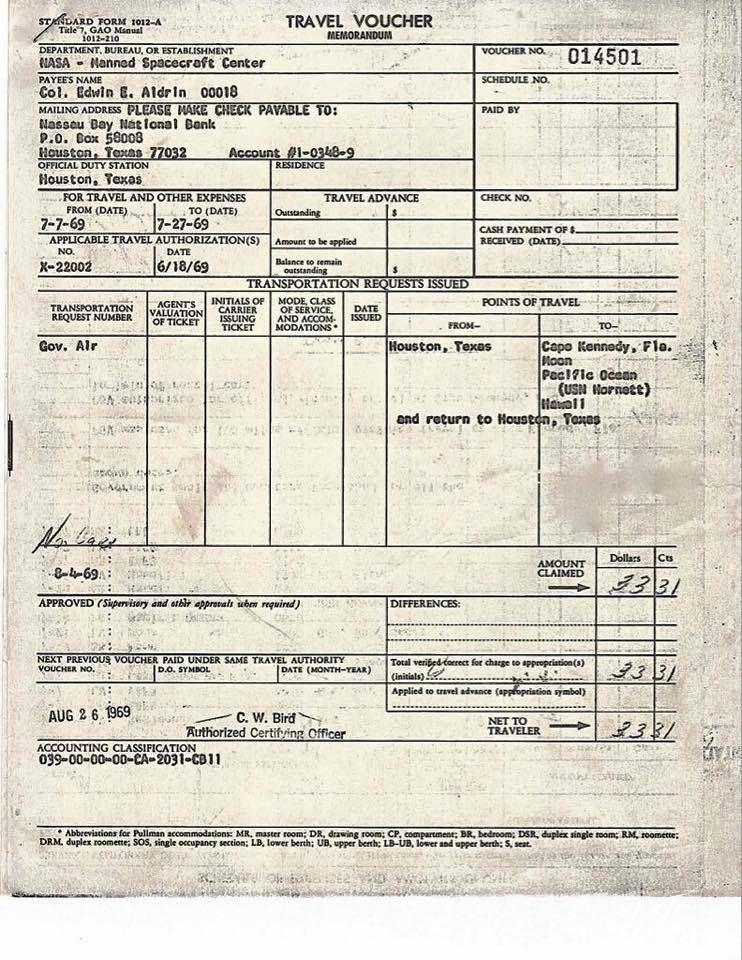 STANDARD FORM 1012-A
Title 7, GAO Manual
1012-210
TRAVEL VOUCHER
MEMORANDUM
DEPARTMENT, BUREAU, OR ESTABLISHMENT
NASA - Manned Spacecraft Center
VOUCHER NO. 014501
PAYEE'S NAME
Col. Edwin E. Aldrin 00018
SCHEDULE NO.
MAILING ADDRESS PLEASE MAKE CHECK PAYABLE TO:
Nassau Bay National Bank
P.O. Box 58008
Houston, Texas 77032 Account #1-0348-9
PAID BY
OFFICIAL DUTY STATION
Houston, Texas
RESIDENCE
FOR TRAVEL AND OTHER EXPENSES
FROM (DATE) TO (DATE)
7-7-69 7-27-69
TRAVEL ADVANCE
Outstanding $
CHECK NO.
APPLICABLE TRAVEL AUTHORIZATION(S)
NO. DATE
X-22002 6/18/69
Amount to be applied
Balance to remain
outstanding $
CASH PAYMENT OF $
RECEIVED (DATE)
TRANSPORTATION REQUESTS ISSUED
TRANSPORTATION
REQUEST NUMBER
AGENT'S
VALUATION
OF TICKET
INITIALS OF
CARRIER
ISSUING
TICKET
MODE, CLASS
OF SERVICE,
AND ACCOM-
MODATIONS *
DATE
ISSUED
POINTS OF TRAVEL
FROM— TO—
Gov. Air Houston, Texas Cape Kennedy, Fla.
Moon
Pacific Ocean
(USN Hornett)
Hawaii
and return to Houston, Texas
8-4-69
AMOUNT
CLAIMED
Dollars Cts
33 31
APPROVED (Supervisory and other approvals when required)
DIFFERENCES:
NEXT PREVIOUS VOUCHER PAID UNDER SAME TRAVEL AUTHORITY
VOUCHER NO. D.O. SYMBOL DATE (MONTH-YEAR)
Total verified correct for charge to appropriation(s)
(initials) 33 31
Applied to travel advance (appropriation symbol)
AUG 26 1969
C. W. Bird
Authorized Certifying Officer
NET TO
TRAVELER 33 31
ACCOUNTING CLASSIFICATION
039-00-00-00-CA-2031-CB11
* Abbreviations for Pullman accommodations: MR, master room; DR, drawing room; CP, compartment; BR, bedroom; DSR, duplex single room; RM, roomette;
DRM, duplex roomette; SOS, single occupancy section; LB, lower berth; UB, upper berth; LB-UB, lower and upper berth; S, seat.